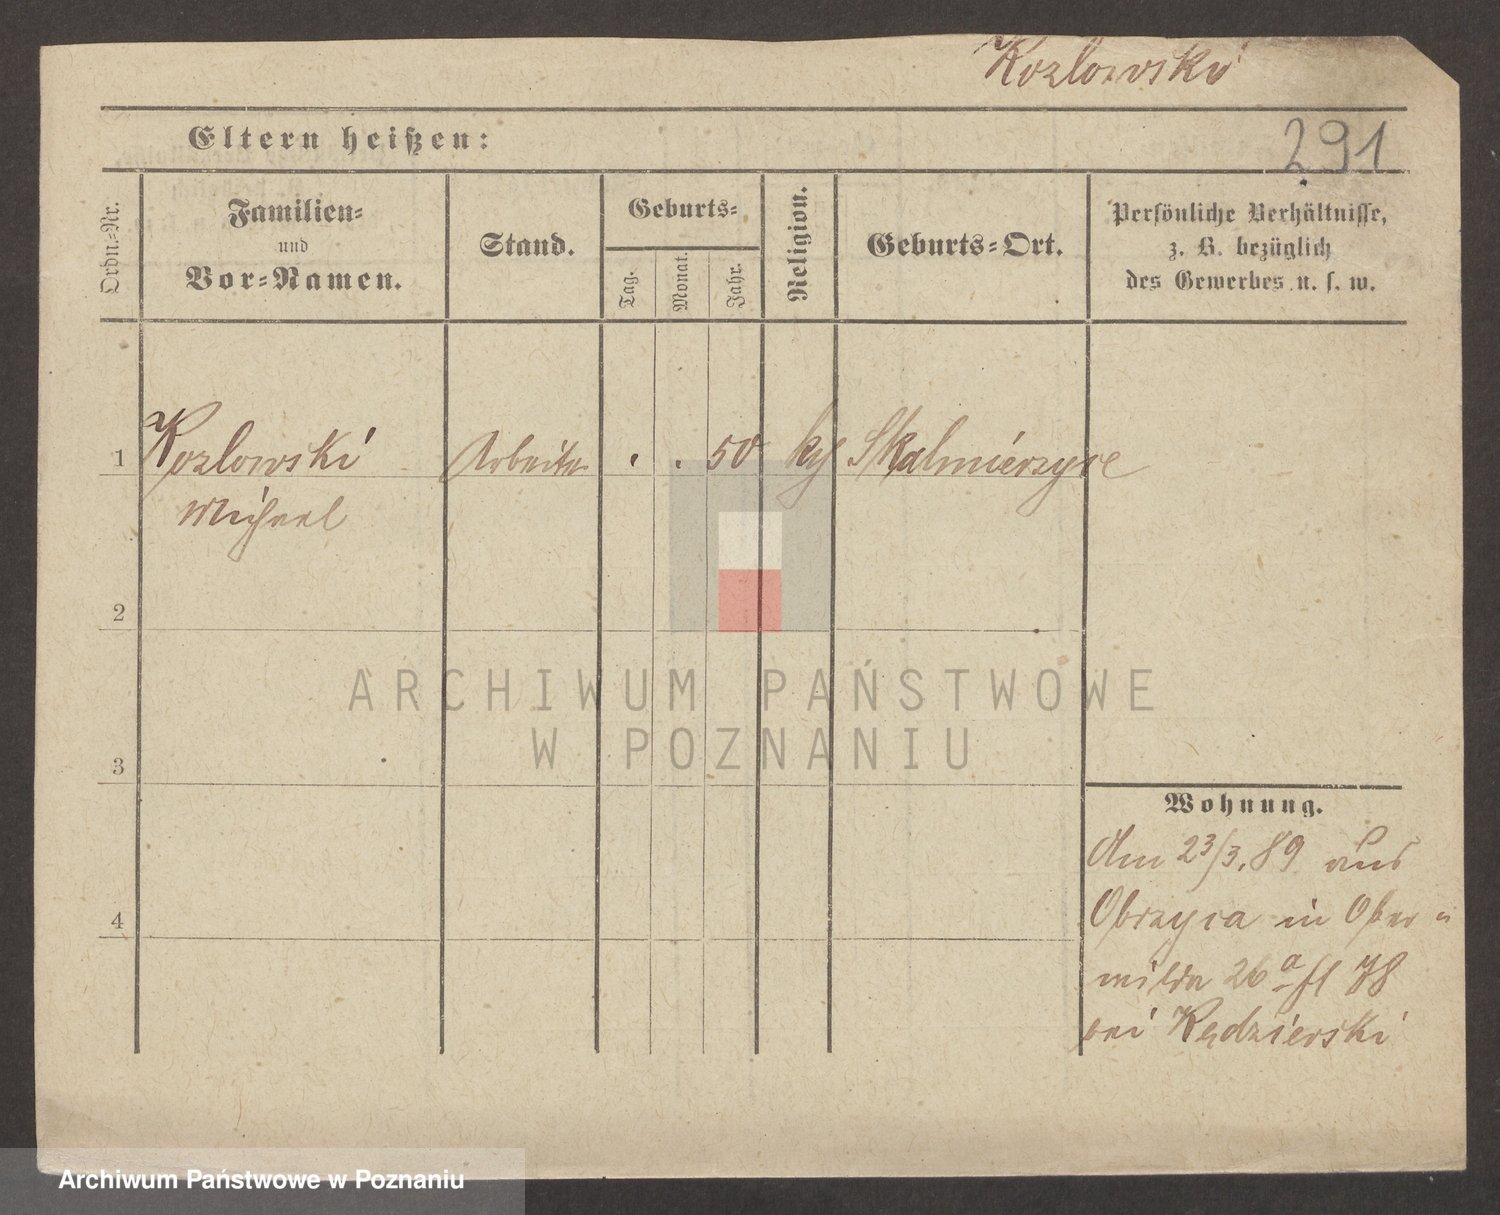 Kozlowski
Eltern heißen:
291
Ordn.-Nr.
Familien-
und
Vor-Namen.
Stand.
Geburts-
Tag.
Monat.
Jahr.
Religion.
Geburts-Ort.
Persönliche Verhältnisse,
z. B. bezüglich
des Gewerbes u. s. w.
1 Kozlowski Arbeiter . . 50 kg Skalmierzyce
Michael
2
3
4
ARCHIWUM PAŃSTWOWE
W POZNANIU
Wohnung.
Am 23/3.89 aus
Obrzyca in Ober-
wilda 26a
bei Kędzierski
Archiwum Państwowe w Poznaniu